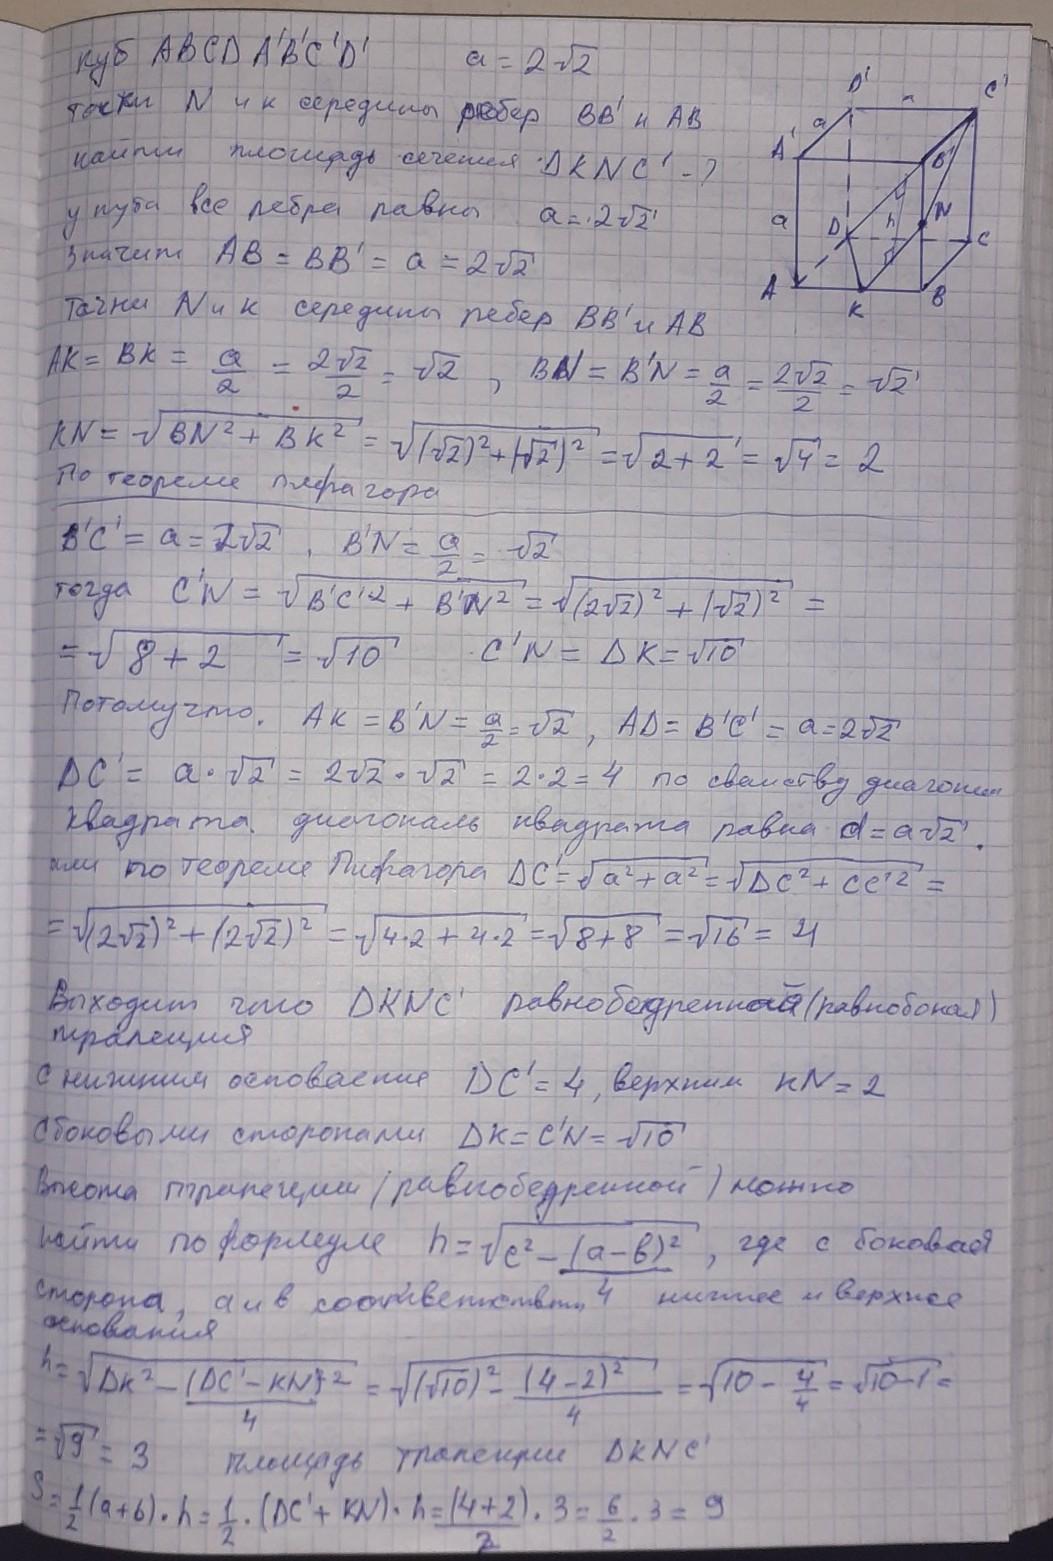 куб ABCDA'B'C'D' a = 2√2
точки N и к середины ребер BB' и AB
найти площадь сечения DKNC' - ?
у куба все ребра равны a = 2√2
Значит AB = BB' = a = 2√2
Точки N и к середины ребер BB' и AB
AK = BK = a/2 = 2√2/2 = √2 , BN = B'N = a/2 = 2√2/2 = √2
KN = √(BN² + BK²) = √((√2)² + (√2)²) = √(2+2) = √4 = 2
По теореме пифагора
B'C' = a = 2√2 , B'N = a/2 = √2
тогда C'N = √(B'C'² + B'N²) = √((2√2)² + (√2)²) =
= √(8+2) = √10 C'N = DK = √10
Потому что. AK = B'N = a/2 = √2 , AD = B'C' = a = 2√2
DC' = a·√2 = 2√2·√2 = 2·2 = 4 по свойству диагонали
квадрата. диагональ квадрата равна d = a√2 .
или по теореме Пифагора DC' = √(a² + a²) = √(DC² + CC'²) =
= √((2√2)² + (2√2)²) = √(4·2 + 4·2) = √(8+8) = √16 = 4
Выходит что DKNC' равнобедренная (равнобокая)
трапеция
с нижним основание DC' = 4 , верхним KN = 2
с боковыми сторонами DK = C'N = √10
Высота трапеции (равнобедренной) можно
найти по формуле h = √(c² - (a-b)²/4) , где c боковая
сторона, a и b соответствен. нижнее и верхнее
основания
h = √(DK² - (DC' - KN)²/4) = √((√10)² - (4-2)²/4) = √(10 - 4/4) = √(10-1) =
= √9 = 3 площадь трапеции DKNC'
S = 1/2 (a+b)·h = 1/2·(DC' + KN)·h = (4+2)/2 · 3 = 6/2 · 3 = 9
D' a C'
a
A' B'
a D h N C
A K B